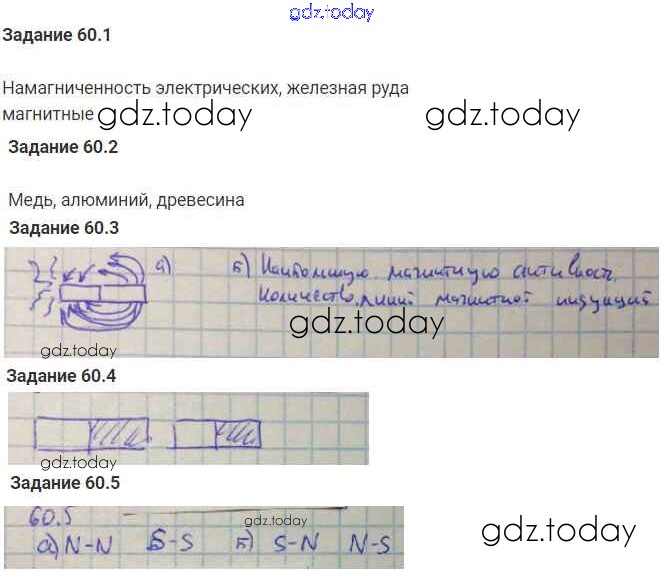 gdz.today
Задание 60.1
Намагниченность электрических, железная руда
магнитные gdz.today gdz.today
Задание 60.2
Медь, алюминий, древесина
Задание 60.3
а) б) Наибольшую магнитную активность.
Количество линий магнитной индукций
gdz.today
gdz.today
Задание 60.4
gdz.today
Задание 60.5
60.5
gdz.today
а) N-N S-S б) S-N N-S
gdz.today